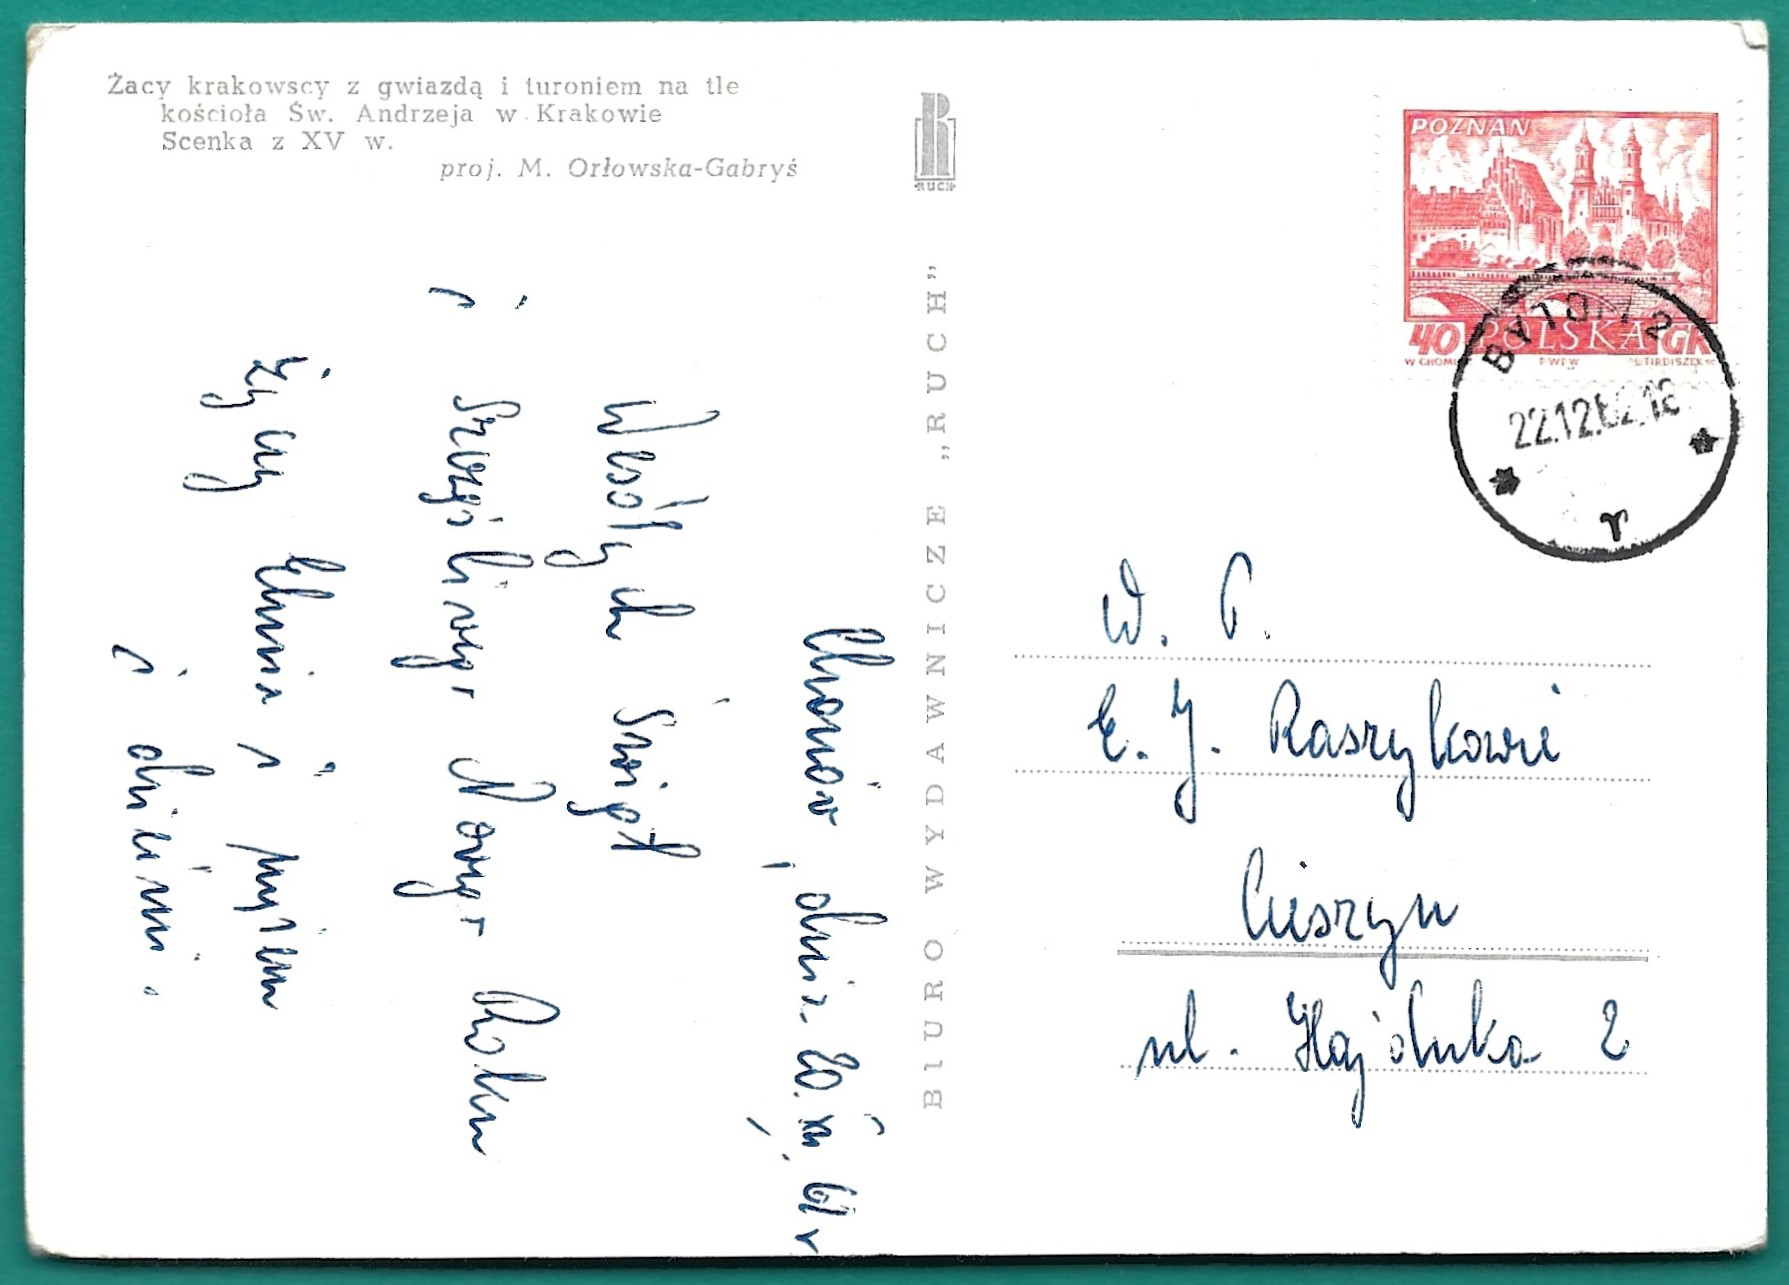 Żacy krakowscy z gwiazdą i turoniem na tle
kościoła Św. Andrzeja w Krakowie
Scenka z XV w.
proj. M. Orłowska-Gabryś
RUCH
BIURO WYDAWNICZE „RUCH”
POZNAŃ
40 POLSKA GR
W CHOM
PWPW
BYTOM 2
22.12.62.18
r
W. P.
E. J. Raszykowie
Cieszyn
ul. Hajduka 2
dnia 20. XII. 62 r
Wesołych Świąt
i Szczęśliwego Nowego Roku
życzy z mężem
i dziećmi.